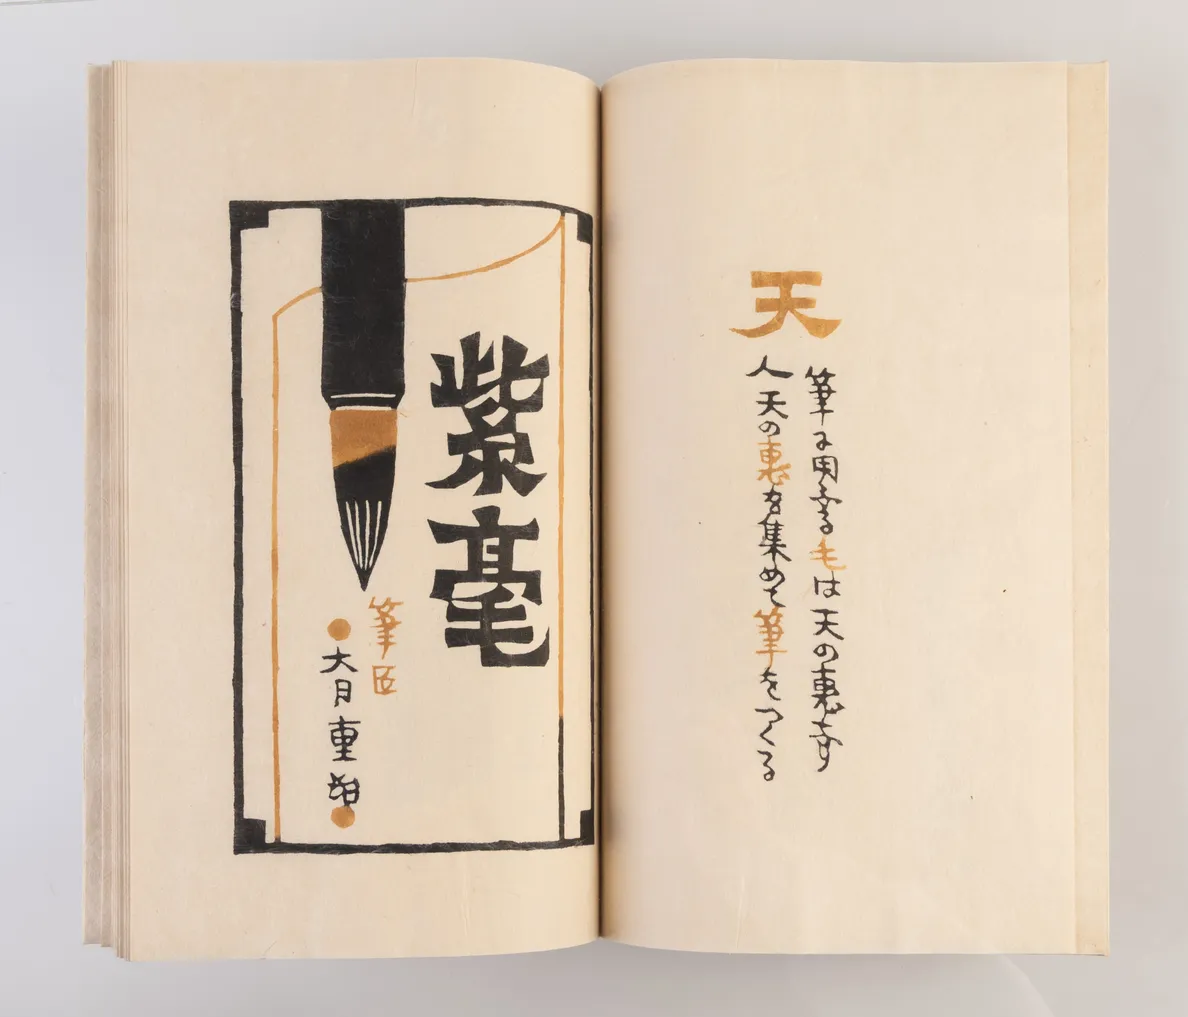 天
筆に用ふる毛は天の恵なり
人天の恵を集めて筆をつくる
紫毫
筆匠
大月重